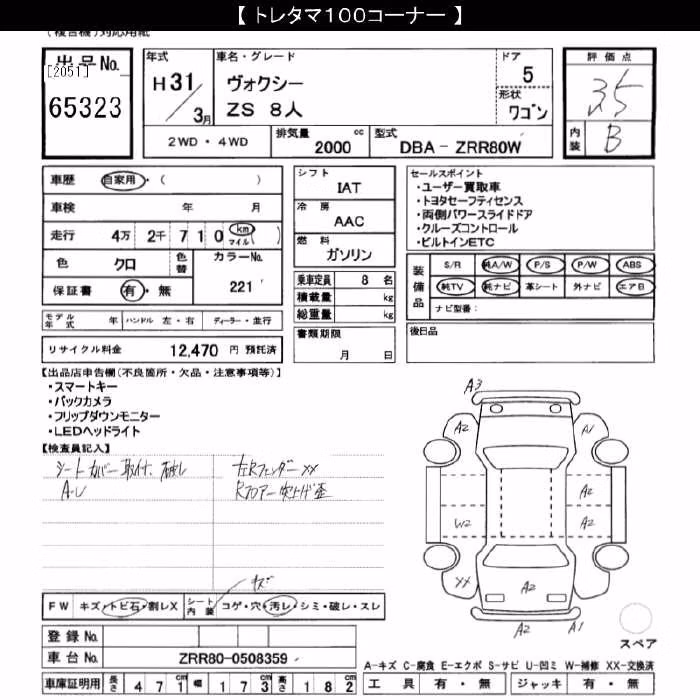 【 トレタマ100コーナー 】
(複合機)対応用紙
出品No.
[2051]
65323
年式
H 31/3月
車名・グレード
ヴォクシー
ZS 8人
ドア
5
形状
ワゴン
評価点
3.5
内装
B
2WD・4WD
排気量 cc
2000
型式
DBA - ZRR80W
車歴 自家用・( )
車検 年 月
走行 4万 2千 7 1 0 km マイル ( )
色 クロ 色替 カラーNo.
221
保証書 有・無
モデル年式 年 ハンドル 左・右 ディーラー・並行
リサイクル料金 12,470 円 預託済
シフト
IAT
冷房
AAC
燃料
ガソリン
乗車定員 8 名
積載量 kg
総重量 kg
書類期限
月 日
セールスポイント
・ユーザー買取車
・トヨタセーフティセンス
・両側パワースライドドア
・クルーズコントロール
・ビルトインETC
装備品
S/R 純A/W P/S P/W ABS
純TV 純ナビ 革シート 外ナビ エアB
ナビ型番:
後日品
【出品店申告欄(不良箇所・欠品・注意事項等)】
・スマートキー
・バックカメラ
・フリップダウンモニター
・LEDヘッドライト
【検査員記入】
シートカバー取付、破れ
A・U
左Rフェンダーxx
Rフロアー突上げ歪
A3
A2
A1
A2
W2
A2
XX
A2
A2
A1
スペア
キズ
FW キズ・トビ石・割レX シート内装 コゲ・穴・汚レ・シミ・破レ・スレ
登録No.
車台No. ZRR80-0508359
車庫証明用 長さ 4 7 1cm 幅 1 7 3cm 高さ 1 8 2cm
A-キズ C-腐食 E-エクボ S-サビ U-凹ミ W-補修 XX-交換済
工具 有・無 ジャッキ 有・無